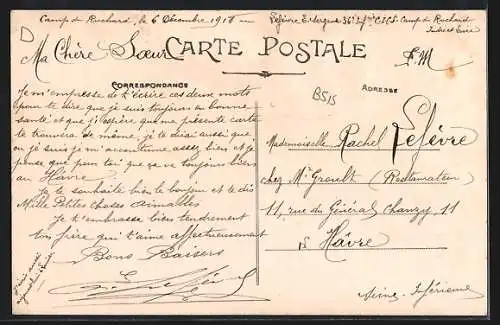 Camp du Ruchard, le 6 Décembre 1916
Lefèvre E. Sergent 36e Camp du Ruchard
Indre et Loire
D
Ma Chère Sœur
CARTE POSTALE
F. M
CORRESPONDANCE
ADRESSE
B515
Je m'empresse de t'écrire ces deux mots
pour te dire que je suis toujours en bonne
santé et que j'espère que ma présente carte
te trouvera de même, je te dirai aussi que
où je suis je m'accoutume assez bien et je
pense que pour toi que ça va toujours bien
au Hâvre
Je te souhaite bien le bonjour et te dis
Mille Petites choses Aimables
Je t'embrasse bien tendrement
ton frère qui t'aime affectueusement
Bons Baisers
Mademoiselle Rachel Lefèvre
chez Mr Grault (Restaurateur)
11, rue du Général Chanzy 11
Hâvre
Seine-Inférieure